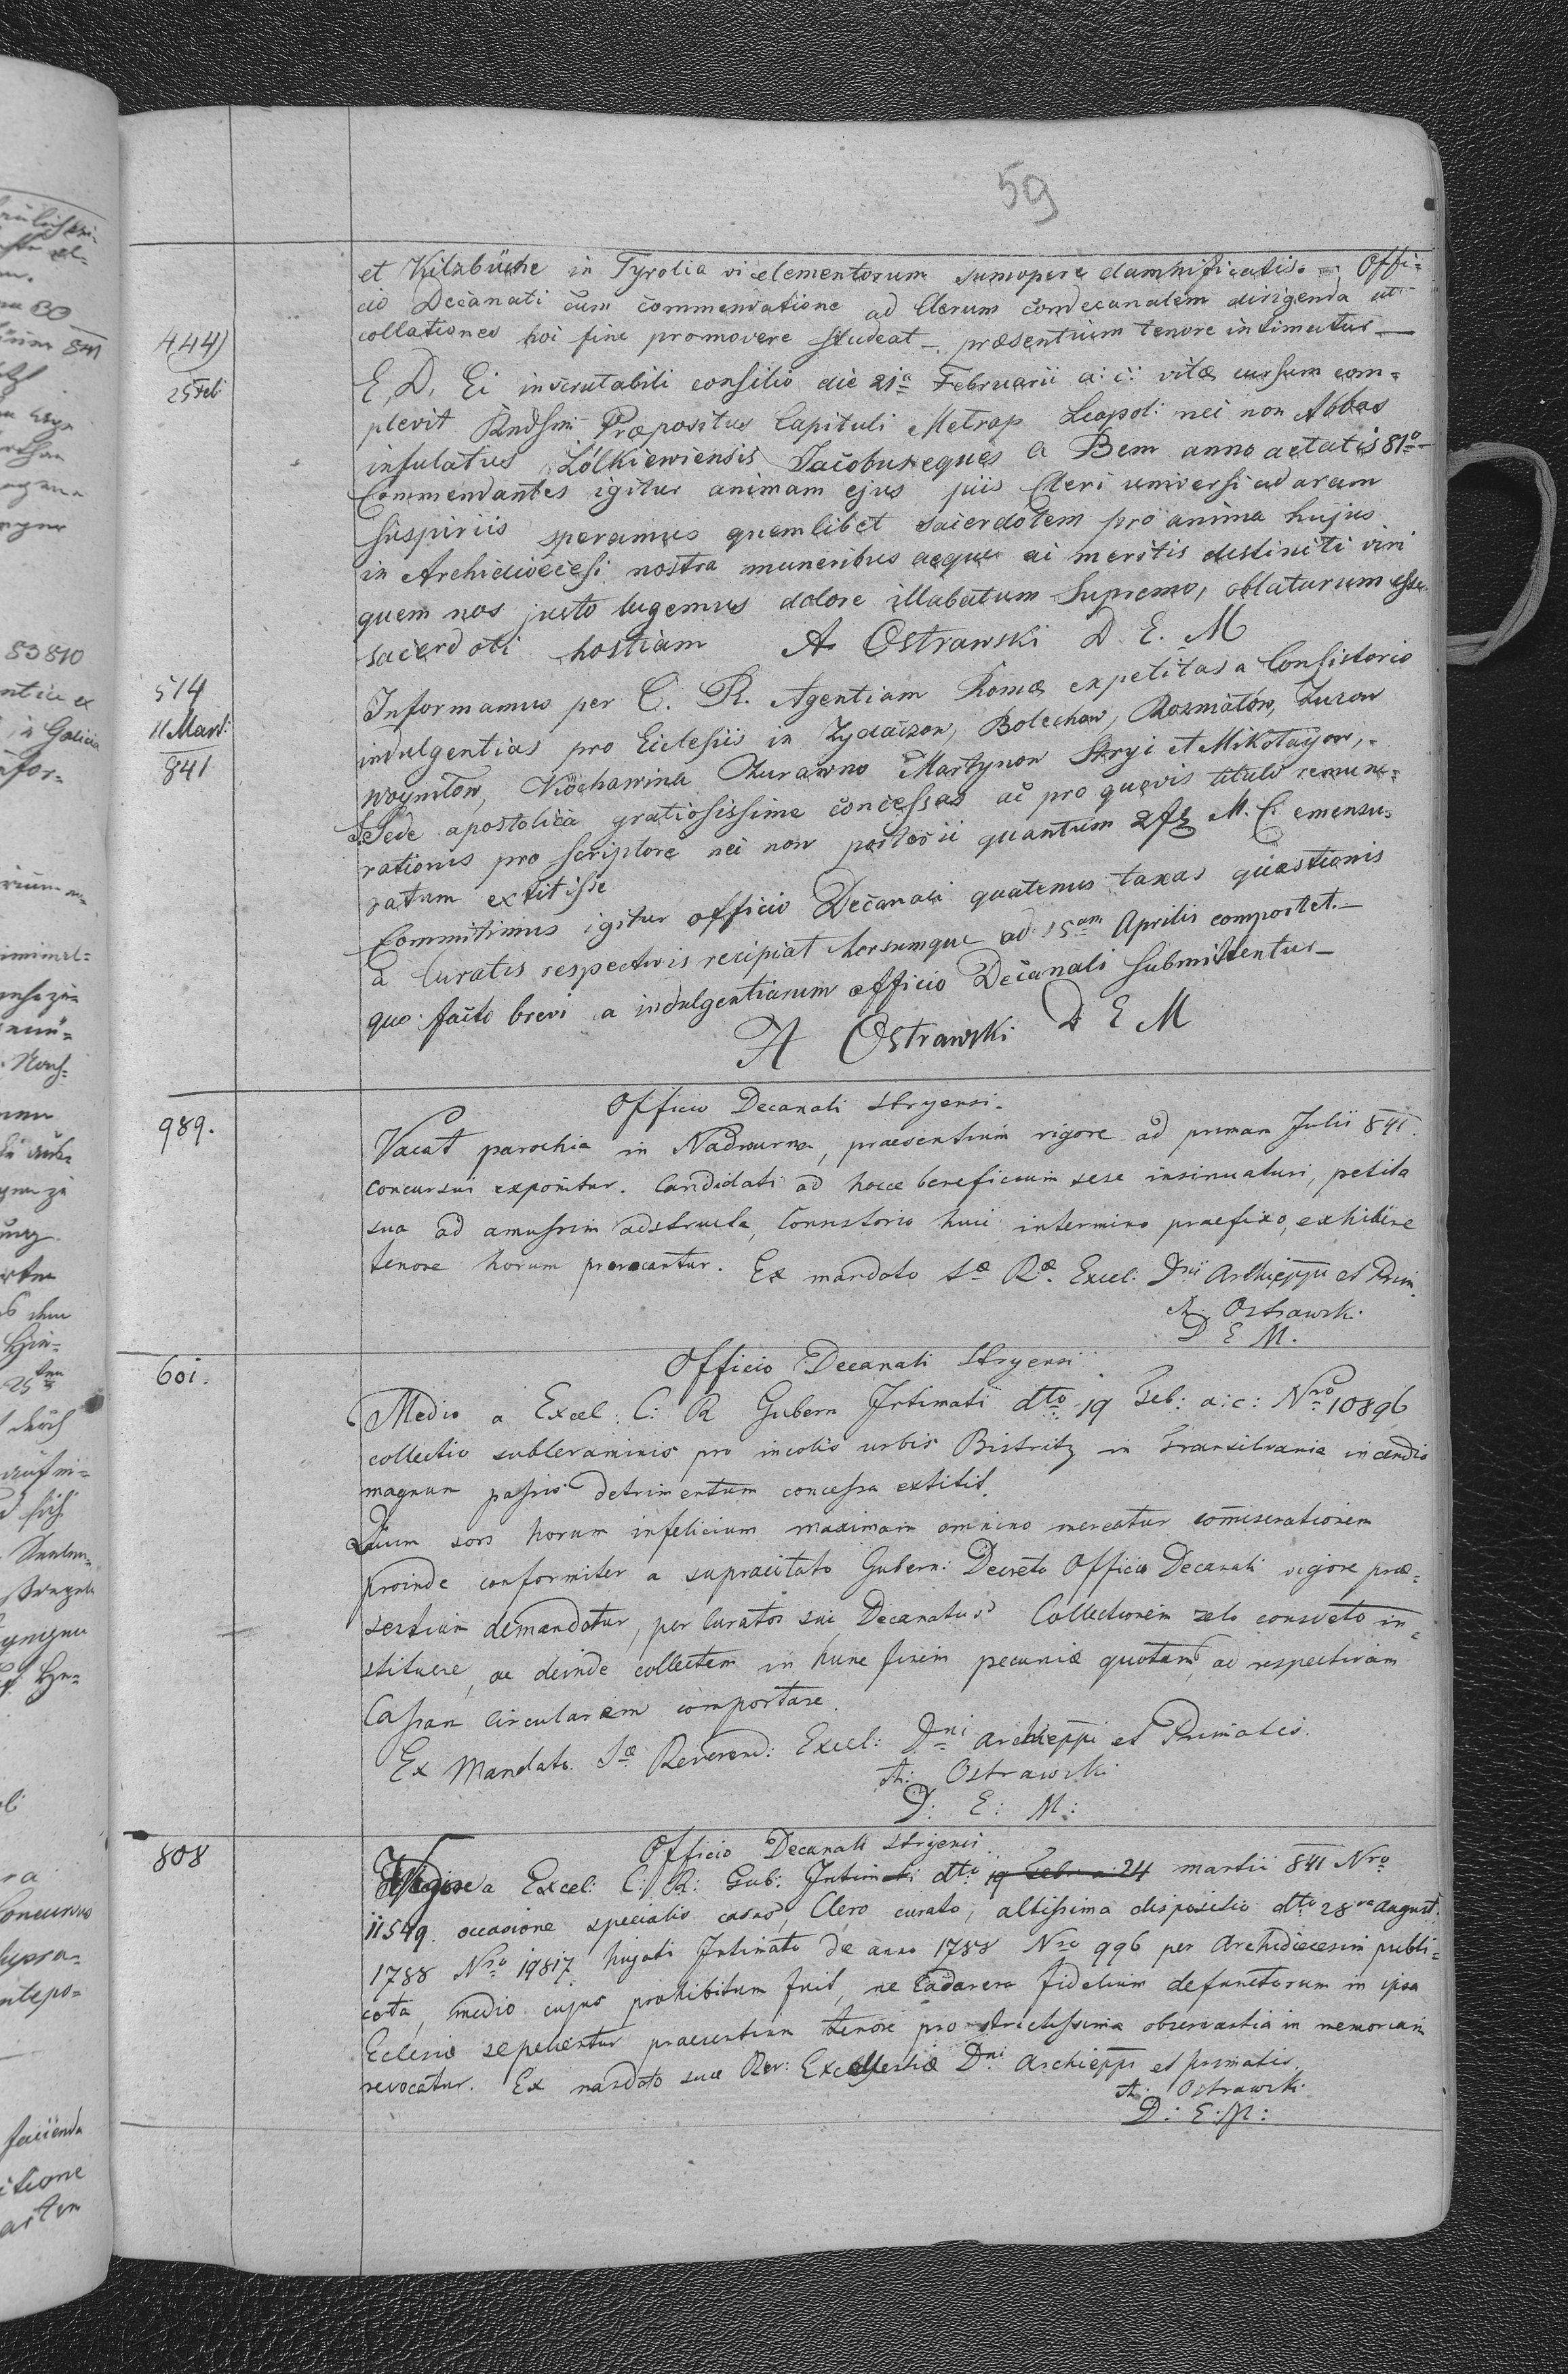 59
et Kitzbüche in Tyrolia vi elementorum sumopere damnificatis. — Offi=
cio Decanati cum commendatione ad Clerum condecanalem dirigenda ut
collationes hoi fine promovere studeat — præsentium tenore intimatur —
444)
25 Feb
E, D, Ei inscrutabili consilio die 21a Februarii a: c: vitæ cursum com=
plevit Rndsmi Præpositus Capituli Metrop Leopol: nei non Abbas
infulatus Żólkiewiensis Jacobus eques a Bem anno aetatis 81o —
Commendantes igitur animam ejus piis Cleri universi ad aram
suspiriis speramus quemlibet sacerdotem pro anima hujus
in Archidioecesi nostra muneribus aeque ai meritis distincti viri
quem nos justo lugemus dolore illabatum Supremo, oblaturum esse
sacerdoti hostiam A Ostrawski D. E. M
514
11 Mart:
841
Informamus per C. R. Agentiam Romæ expetitas a Consistorio
indulgentias pro Eiclesiis in Zydaczow, Bolechow, Rozniatów, Zurow
Woyniłow, Zurawno Martynow Stryi et Mikołayow, -
S. Sede apostolica gratiosissime concessas ac pro quovis titulo remune=
rationis pro scriptore nei non portorii quantum 2 fl M. C. emensu=
ratum extitisse
Committimus igitur officio Decanali quatenus taxas quæstionis
a Curatis respectivis recipiat horsumque ad 15am Aprilis comportet. —
quo facto brevi a indulgentiarum officio Decanali submittentur —
A Ostrawski D E M
989.
Officio Decanali stryensi.
Vacat parochia in Nadwurna, praesentium vigore ad primam Julii 841
concursui exponitur. Candidati ad hocce beneficium sese insinuaturi, petita
sua ad amussim adstructa, Consistorio huic intermino praefixo, exhibere
tenore horum provocantur. Ex mandato Sæ Ræ. Excel: Dni Archieppi et Prim.
A. Ostrawski
D E M.
601.
Officio Decanali Stryensi
Medio a Excel: C: R Gubern Intimati dto 19 Feb: a: c: Nro 10896
collectio subleraminis pro incolis urbis Bistritz in Transilvania incendio
magnum passis detrimentum concessa extitit.
Quum sors horum infelicium maximam omnino mereatur comiserationem
proinde conformiter a supracitato Gubern: Decreto Officio Decanali vigore præ=
sentium demandatur, per Curatos sui Decanatus Collectionem zelo consveto in=
stituere, ac deinde collectam in hunc finem pecuniæ quotam ad respectivam
Cassam circularem comportare.
Ex Mandato Sæ Reverend: Excel: Dni archieppi et Primatis.
A: Ostrawski
D: E: M:
808
Officio Decanali stryensi
Vigore a Excel: C: R: Gub: Intimati dto 19 Feb: a: 24 martii 841 Nro
11549. occasione specialis casus, Clero curato, altissima dispositio dto 28va August:
1788 Nro 19817 hujati Intimato de anno 1788 Nro 996 per Archidiecesim publi=
cata, medio cujus prohibitum fuit, ne Cadavera fidelium defunctorum in ipsa
Eclesia sepeliantur praesentium tenore pro strictissima observantia in memoriam
revocatur. Ex mandato suæ Rev: Excellentiæ Dni Archieppi et primatis.
A: Ostrawski
D: E: M: